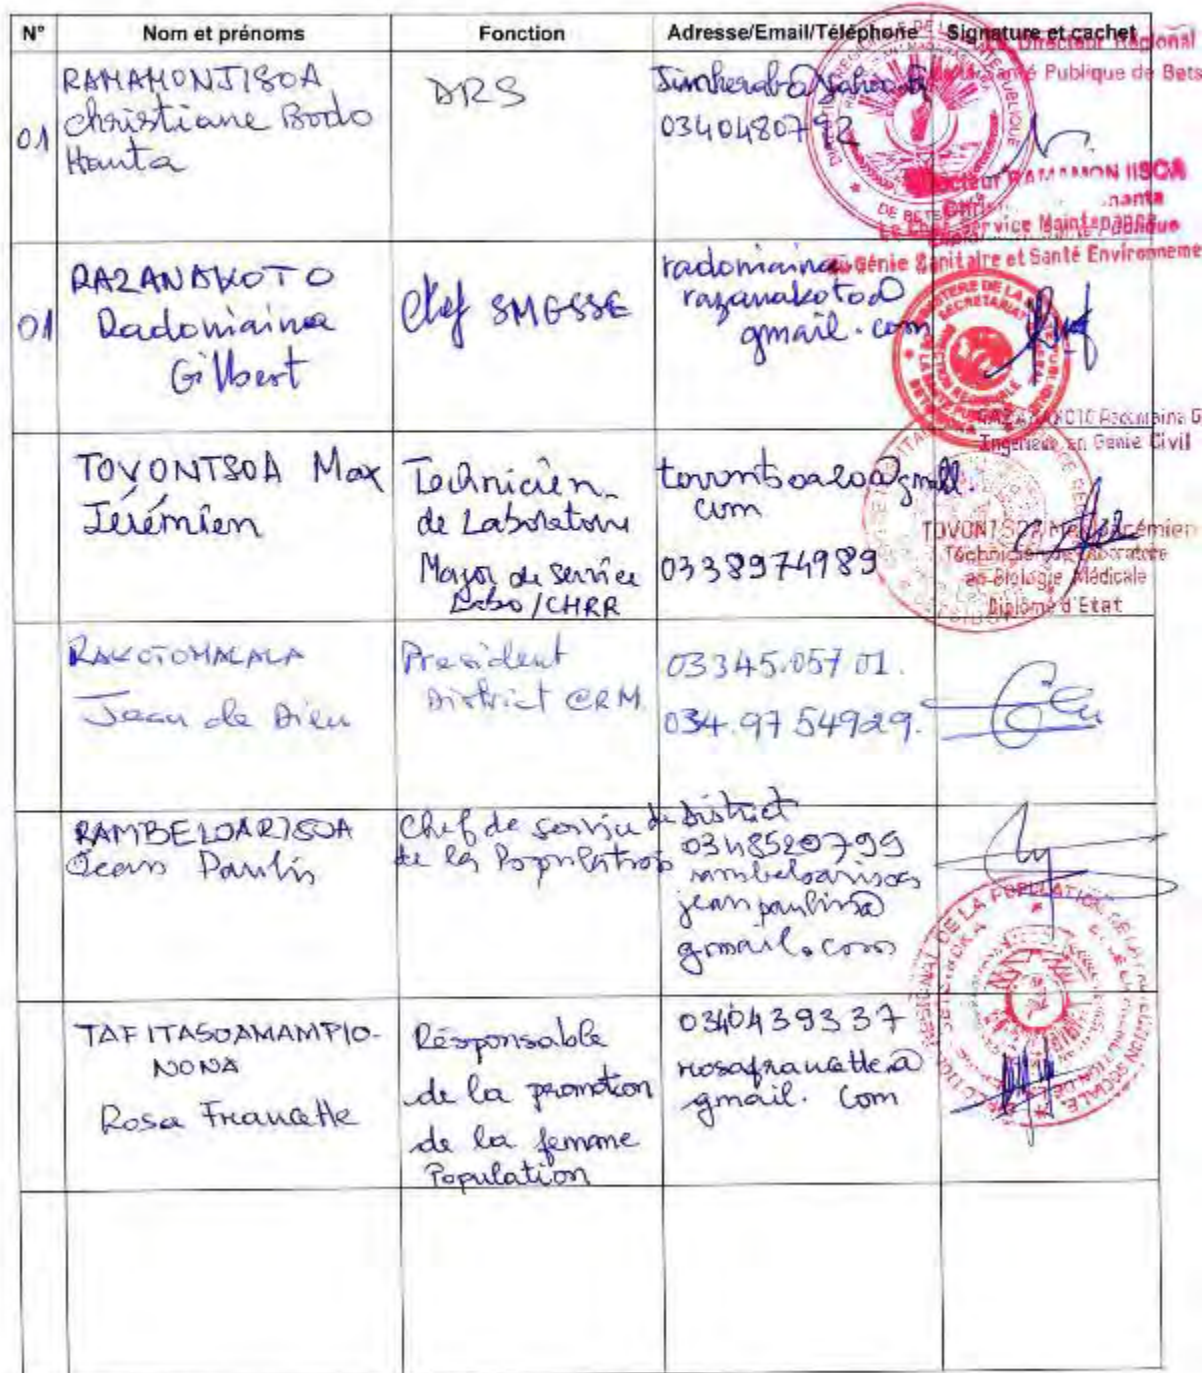 N° Nom et prénoms Fonction Adresse/Email/Téléphone Signature et cachet
Directeur Régional
Santé Publique de Bets
01
RAMAMONJISOA
Christiane Bodo
Hanta
DRS
03404807 92
Le Chef Service Maintenance
Génie Sanitaire et Santé Environneme
01
RAZANAKOTO
Radoniaina
Gilbert
Chef SMGSSE
radoniaina
razanakoto@
gmail.com
Ingénieur en Génie Civil
TOVONTSOA Max
Jérémien
Technicien
de Laboratoire
Major de service
Labo/CHRR
com
0338974989
TOVONTSOA Max Jérémien
Technicien de Laboratoire
en Biologie Médicale
Diplômé d'Etat
RAKOTOMALALA
Jean de Dieu
President
District CRM.
03345.057 01.
034.97 54929.
RAMBELOARISOA
Jean Paulin
Chef de service de District
de la Population
0348520799
rambeloarisoa
jeanpaulin@
gmail.com
TAFITASOAMAMPIO-
NONA
Rosa Francette
Résponsable
de la promotion
de la femme
Population
0340439337
rosafrancette@
gmail. com